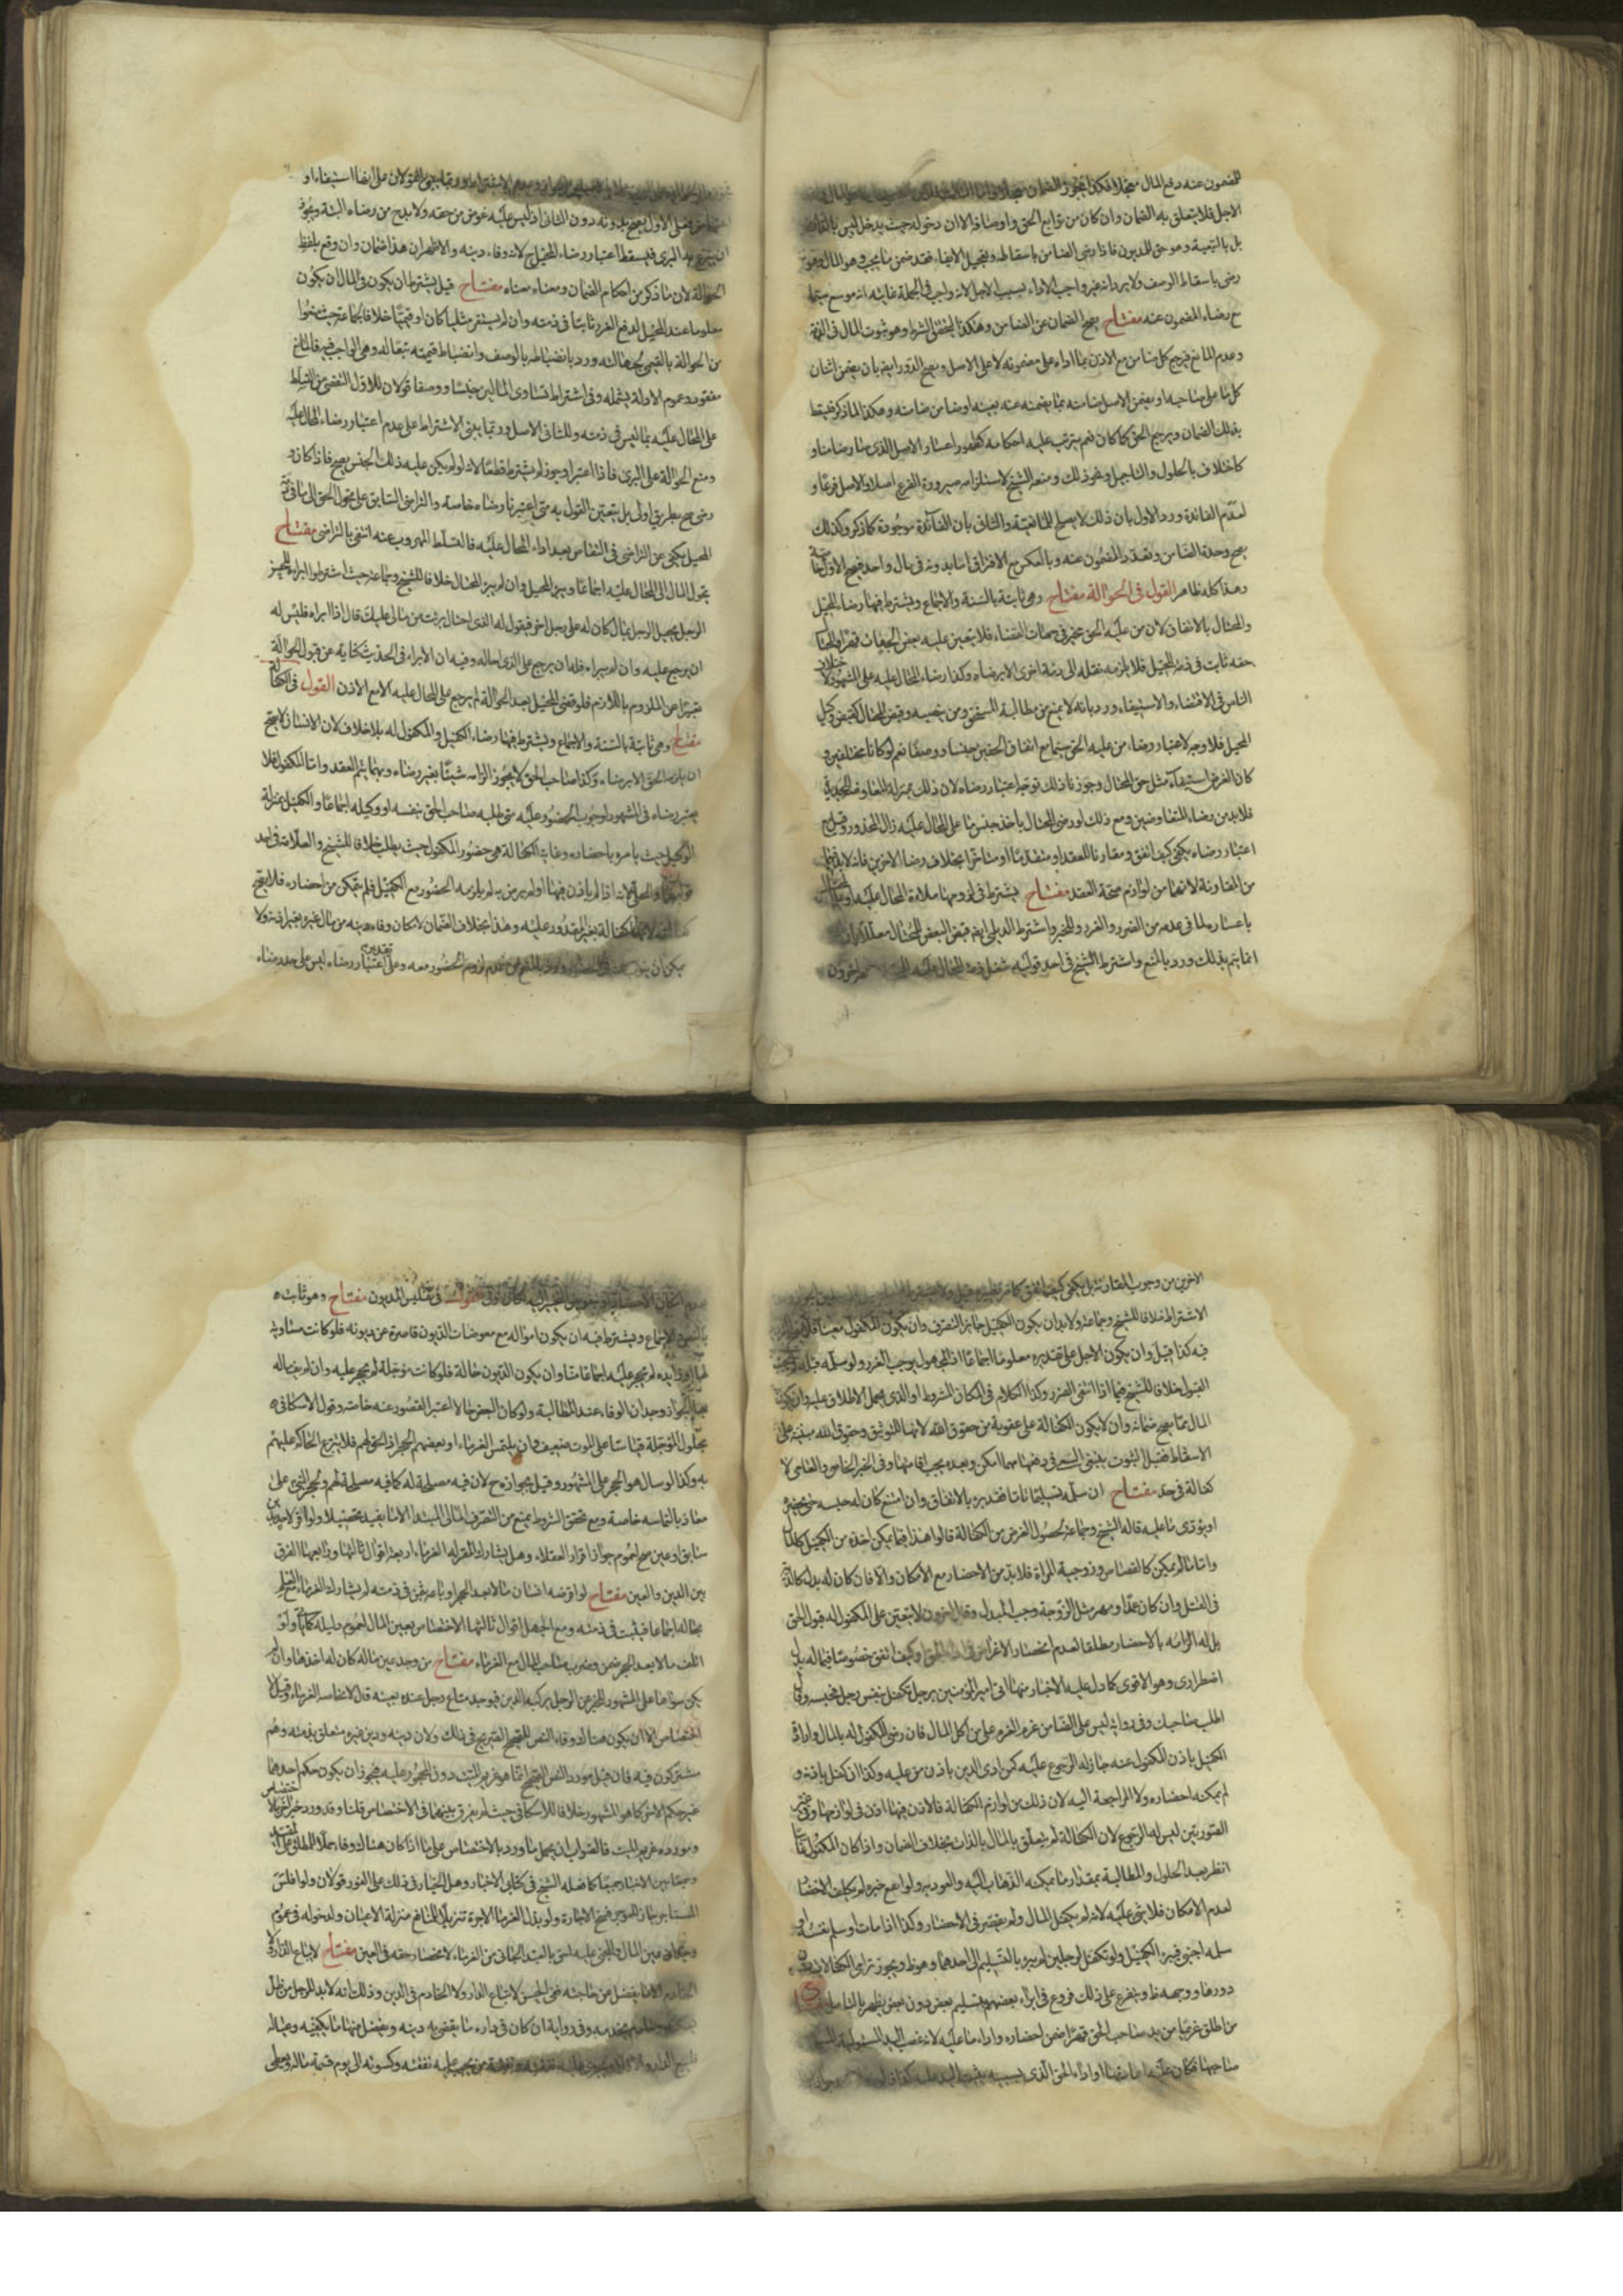 للمضمون عنه دفع المال معجلا فكذا يجوز الضمان
الاجل فلا يتعلق به الضمان وان كان من توابع الحق واوصافه الا ان دخوله حيث يدخل ليس بالذات
بل بالتبعية وهو حق للمديون فاذا رضى الضامن باسقاطه وتعجيل الايفاء فقد ضمن ما يجب وهو المال وهو
رضى باسقاط الوصف ولا يرد انه غير واجب الاداء بسبب الاجل لانه واجب فى الجملة غايته انه موسع سيما
مع رضاء المضمون عنه مفتاح يصح الضمان عن الضامن وهكذا لتحقق الشرط وهو ثبوت المال فى الذمة
وعدم المانع فيرجع كل ضامن مع الاذن بما اداه على مضمونه لا على الاصل ويصح الدور ايضا بان يضمن اثنان
كل ما على صاحبه او يضمن الاصيل ضامنه عما يضمنه عنه بعينه او ضامن ضامنه وهكذا لما ذكر فيسقط
بذلك الضمان ويرجع الحق كما كان نعم يترتب عليه احكامه كظهور اعسار الاصل الذى صار ضامنا و
كاختلاف بالحلول والتاجيل ونحو ذلك ومنعه الشيخ لاستلزامه صيرورة الفرع اصلا والاصل فرعا و
لعدم الفائدة ورد الاول بان ذلك لا يصلح للمانعية والثانى بان الفائدة موجودة كما ذكر وكذلك
يصح وحدة الضامن وتعدد المضمون عنه وبالعكس مع الافتراق اما بدونه فى مال واحد فيصح الاول خاصة
وهذا كله ظاهر القول فى الحوالة مفتاح وهى ثابتة بالسنة والاجماع ويشترط فيها رضاء المحيل
والمحتال بالاتفاق لان من عليه الحق مخير فى جهات القضاء فلا يتعين عليه بعض الجهات قهرا والمحتال
حقه ثابت فى ذمة المحيل فلا يلزمه نقله الى ذمة اخرى الا برضاه وكذا رضاء المحال عليه على المشهور لاختلاف
الناس فى الاقتضاء والاستيفاء ورد بانه لا يمنع من مطالبة المستحق ومن نصبه وقبض المحتال كقبض وكيل
المحيل فلا وجه لاعتبار رضاء من عليه الحق سيما مع اتفاق الحقين جنسا ووصفا نعم لو كانا مختلفين و
كان الغرض استيفاء مثل حق المحتال وجوزنا ذلك توجه اعتبار رضاه لان ذلك بمنزلة المعاوضة الجديدة
فلا بد من رضاء المتعاوضين ومع ذلك لو رضى المحتال باخذ جنس ما على المحال عليه زال المحذور وقيل مع
اعتبار رضاه يكفى كيف اتفق ومقارنا للعقد او متقدما او متاخرا بخلاف رضا الاخرين فانه لا بد فيهما
من المقارنة لانهما من لوازم صحة العقد مفتاح يشترط فى لزومها ملاءة المحال عليه او علم المحتال
باعساره لما فى عدمه من الضرر والغرر وللخبر واشترط الديلمى ايضا قبض البعض المحتال معللا بان
انما يتم بذلك ورد بالمنع واشترط الشيخ فى احد قوليه شغل ذمة المحال عليه
القولان على انها استيفاء او
فعلى الاول يصح بدونه دون الثانى اذ ليس عليه عوض من حقه ولا بد ح من رضاه البتة ويجوز
ان يتبرع به البرى فيسقط اعتبار رضاء المحيل ح لانه وفاء دينه والاظهر ان هذا ضمان وان وقع بلفظ
الحوالة لان ما ذكر من احكام الضمان ومعناه معناه مفتاح قيل يشترط ان يكون فى المال ان يكون
معلوما عند المحيل لدفع الغرر ثابتا فى ذمته وان لم يستقر مثليا كان او قيميا خلافا لجماعة حيث منعوا
من الحوالة بالقيمى لجهالته ورد بانضباطه بالوصف وانضباط قيمته تبعا له وهى الواجب فيه فالمانع
مفقود وعموم الادلة يشمله وفى اشتراط تساوى المالين جنسا ووصفا قولان للاول التفصى من التسلط
على المحال عليه بما ليس فى ذمته وللثانى الاصل وربما يبنى الاشتراط على عدم اعتبار رضاء المحال عليه
ومنع الحوالة على البرى فاذا اعتبر او جوز لم يشترط قطعا لانه لو لم يكن عليه ذلك الجنس يصح فاذا كان و
رضى صح بطريق اولى بل يتعين القول به متى اعتبرنا رضاه خاصة والتراضى السابق على تحول الحق الى ما فى ذمة
المحيل يكفى عن التراضى فى التقاص بعد اداء المحال عليه فالتسلط المهروب عنه انتفى بالتراضى مفتاح
تحول المال الى المحال عليه اجماعا ويبرء المحيل وان لم يبرئه المحتال خلافا للشيخ وجماعة حيث اشترطوا البراءة للخبر
الرجل يحيل الرجل بمال كان له على رجل اخر فيقول له الذى احتال برئت من مالى عليك قال اذا ابراه فليس له
ان يرجع عليه وان لم يبراه فله ان يرجع على الذى احاله وفيه ان الابراء فى الحديث كناية عن قبول الحوالة
تعبيرا عن الملزوم باللازم فلو قضى المحيل بعد الحوالة لم يرجع على المحال عليه الا مع الاذن القول فى الكفالة
مفتاح وهى ثابتة بالسنة والاجماع ويشترط فيها رضاء الكفيل والمكفول له بلا خلاف لان الانسان لا يصح
ان يلزمه الحق الا برضاه وكذا صاحب الحق لا يجوز الزامه شيئا بغير رضاه وبهما يتم العقد واما المكفول فلا
يعتبر رضاه فى المشهور لوجوب الحضور عليه متى طلبه صاحب الحق بنفسه او وكيله اجماعا والكفيل بمنزلة
الوكيل حيث يامره باحضاره وغاية الكفالة هى حضور المكفول حيث يطلب خلافا للشيخ والعلامة فى احد
قوليهما والحلى لانه اذا لم ياذن فيها او لم يرض به لم يلزمه الحضور مع الكفيل فلم يتمكن من احضاره فلا يصح
كفالة بغير المقدور عليه وهذا بخلاف الضمان لامكان وفاء دينه من مال غيره بغير اذنه ولا
يمكن ان ينوب لزوم الحضور معه وعلى تقدير اعتبار رضاه ليس على حد رضاء
الاخرين من وجوب المقارنة بل يكفى كيف اتفق كما مر نظيره
الاشتراط خلافا للشيخ وجماعة ولا بد ان يكون الكفيل جايز التصرف وان يكون المكفول معينا
فيه كذا قيل وان يكون الاجل على تقديره معلوما اجماعا اذ المجهول يوجب الغرر ولو سلمه قبله
القبول خلافا للشيخ فيما اذا انتفى الضرر وكذا الكلام فى المكان المشروط او الذى يحمل الاطلاق عليه وان يكون
المال مما يصح ضمانه وان لا يكون الكفالة على عقوبة من حقوق الله لانها للتوثيق وحقوق الله مبنية على
الاسقاط فقبل الثبوت ينبغى السعى فى دفعها مهما امكن وبعده يجب اقامتها وفى الخبر الخاص والعامى لا
كفالة فى حد مفتاح ان سلمه تسليما تاما فقد برء بالاتفاق وان امتنع كان له حبسه حتى يحضره
او يؤدى ما عليه قاله الشيخ وجماعة لحصول الغرض من الكفالة قالوا هذا فيما يمكن اخذه من الكفيل كالمال
واما ما لم يمكن كالقصاص وزوجية المراة فلا بد من الاحضار مع الامكان والا فان كان له بدل كالدية
فى القتل وان كان عمدا ومهر مثل الزوجة وجب البدل وقال اخرون لا يتعين على المكفول له قبول الحق
بل له الزامه بالاحضار مطلقا لعدم انحصار الاغراض فى اداء الحق وكيف اتفق خصوصا فيما له بدل
اضطرارى وهو الاقوى كما دل عليه الاخبار منها اتى امير المؤمنين برجل تكفل بنفس رجل فحبسه وقال
اطلب صاحبك وفى رواية ليس على الضامن غرم الغرم على من اكل المال فان رضى المكفول له بالمال واداه
الكفيل باذن المكفول عنه جاز له الرجوع عليه كمن ادى الدين باذن من عليه وكذا ان كفل باذنه و
لم يمكنه احضاره ولا المراجعة اليه لان ذلك من لوازم الكفالة فالاذن فيها اذن فى لوازمها وفى غير
الصورتين ليس له الرجوع لان الكفالة لم يتعلق بالمال بالذات بخلاف الضمان واذا كان المكفول غائبا
انظر بعد الحلول والمطالبة بمقدار ما يمكنه الذهاب اليه والعود به ولو انقطع خبره لم يكلف الاحضار
لعدم الامكان فلا شئ عليه لانه لم يكفل المال ولم يقصر فى الاحضار وكذا اذا مات او سلم نفسه او
سلمه اجنبى فيبرء الكفيل ولو تكفل لرجلين لم يبرء بالتسليم الى احدهما وهو ظ ويجوز ترامى الكفالات
دورها ووجهه ظ ويتفرع على ذلك فروع فى ابراء بعضهم وتسليم بعض دون بعض يظهر بالتامل
من اطلق غريما من يد صاحب الحق قهرا ضمن احضاره واداء ما عليه لانه غصب اليد المستولية
صاحبها فكان عليه اعادتها او اداء الحق الذى بسببه يثبت اليد عليه
فى تفليس المديون مفتاح وهو ثابت
والاجماع ويشترط فيه ان يكون امواله مع معوضات الديون قاصرة عن ديونه فلو كانت مساوية
لها او زايدة لم يحجر عليه اجماعا منا وان يكون الديون حالة فلو كانت مؤجلة لم يحجر عليه وان لم يف ماله
بها لجواز وجدان الوفاء عند المطالبة ولو كان البعض حالا اعتبر القصور عنه خاصة وقول الاسكافى
بحلول المؤجلة قياسا على الموت ضعيف وان يلتمس الغرماء او بعضهم الحجر اذ الحق لهم فلا يتبرع الحاكم عليهم
به وكذا لو سال هو الحجر على المشهور وقيل بجوازه ح لان فيه مصلحة له كما فيه مصلحة لهم ولحجر النبى على
معاذ بالتماسه خاصة ومع تحقق الشروط يمنع من التصرف المالى المبتدا الا ما يفيد تحصيلا ولو اقر بدين
سابق او عين صح لعموم جواز اقرار العقلاء وهل يشارك المقر له الغرماء اربعة اقوال ثالثها ورابعها الفرق
بين الدين والعين مفتاح لو اقرضه انسان مالا بعد الحجر او باعه بثمن فى ذمته لم يشارك الغرماء مع العلم
بحاله اجماعا فيثبت فى ذمته ومع الجهل اقوال ثالثها الاختصاص بعين المال لعموم دليله كما ياتى ولو
اتلف مالا بعد الحجر ضمن وضرب صاحب المال مع الغرماء مفتاح من وجد عين ماله كان له اخذها وان لم
يكن سواها على المشهور للخبر عن الرجل يركبه الدين فيوجد متاع رجل عنده بعينه قال لا يحاصه الغرماء وقيل لا
اختصاص الا ان يكون هناك وفاء للنص الصحيح الصريح فى ذلك ولان دينه ودين غيره متعلق بذمته وهم
مشتركون فيه فان قيل مورد النص الصحيح انما هو غريم الميت دون المحجور عليه فيجوز ان يكون حكم احدهما
غير حكم الاخر كما هو المشهور خلافا للاسكافى حيث لم يفرق بينهما فى الاختصاص قلنا وقد ورد خبر اخر
ومورده غريم الميت فالصواب ان يحمل ما ورد بالاختصاص على ما اذا كان هناك وفاء حملا للمطلق على المقيد
وجمعا بين الاخبار جميعا كما فعله الشيخ فى كتابى الاخبار وهل الخيار فى ذلك على الفور قولان ولو افلس
المستاجر جاز للموجر فسخ الاجارة ولو بذل الغرماء الاجرة تنزيلا للمنافع منزلة الاعيان ولدخوله فى عموم
وجدان عين المال والمجنى عليه احق بالعبد الجانى من الغرماء لانحصار حقه فى العين مفتاح لا يباع الدار ولا
الخادم الا ما يفضل من حاجته ففى الحسن لا يباع الدار ولا الخادم فى الدين وذلك انه لا بد للرجل من ظل
يسكنه وخادم يخدمه وفى رواية ان كان فى داره ما يقضى به دينه ويفضل منها ما يكفيه وعياله
فليبع الدار نفقته ونفقة من يجب عليه نفقته وكسوته الى يوم قسمة ماله ويعطى